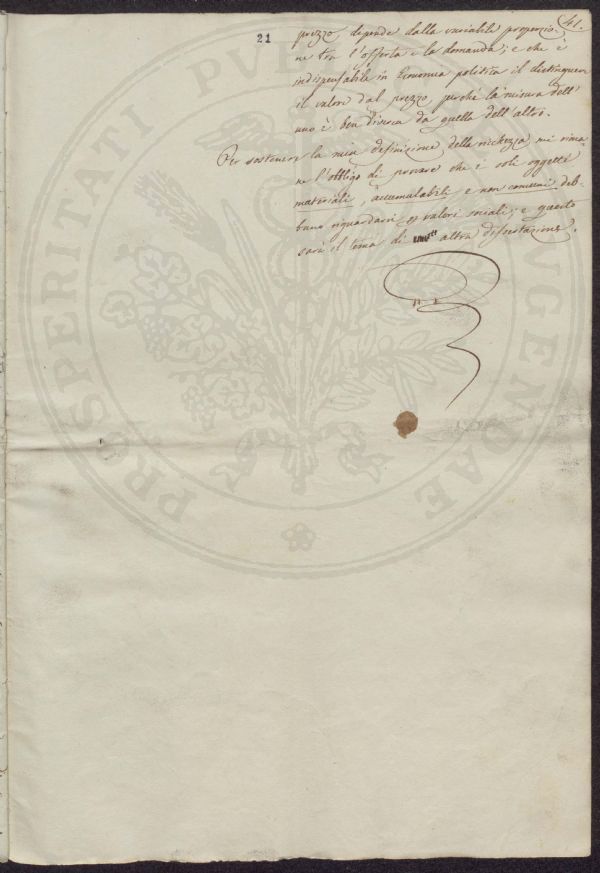 41.
21
prezzo, depende dalla variabile proporzio-
ne tra l'offerta e la domanda; e che è
indispensabile in Economia politica il distinguere
il valore dal prezzo, perché la misura dell'
uno è ben diversa da quella dell'altro.
Per sostenere la mia definizione della ricchezza mi rima-
ne l'obbligo di provare che i soli oggetti
materiali, accumulabili e non comuni deb-
bano riguardarsi valori sociali; e questo
sarà il tema di altra dissertazione.
PROSPERITATI PUBLICAE AUGENDAE